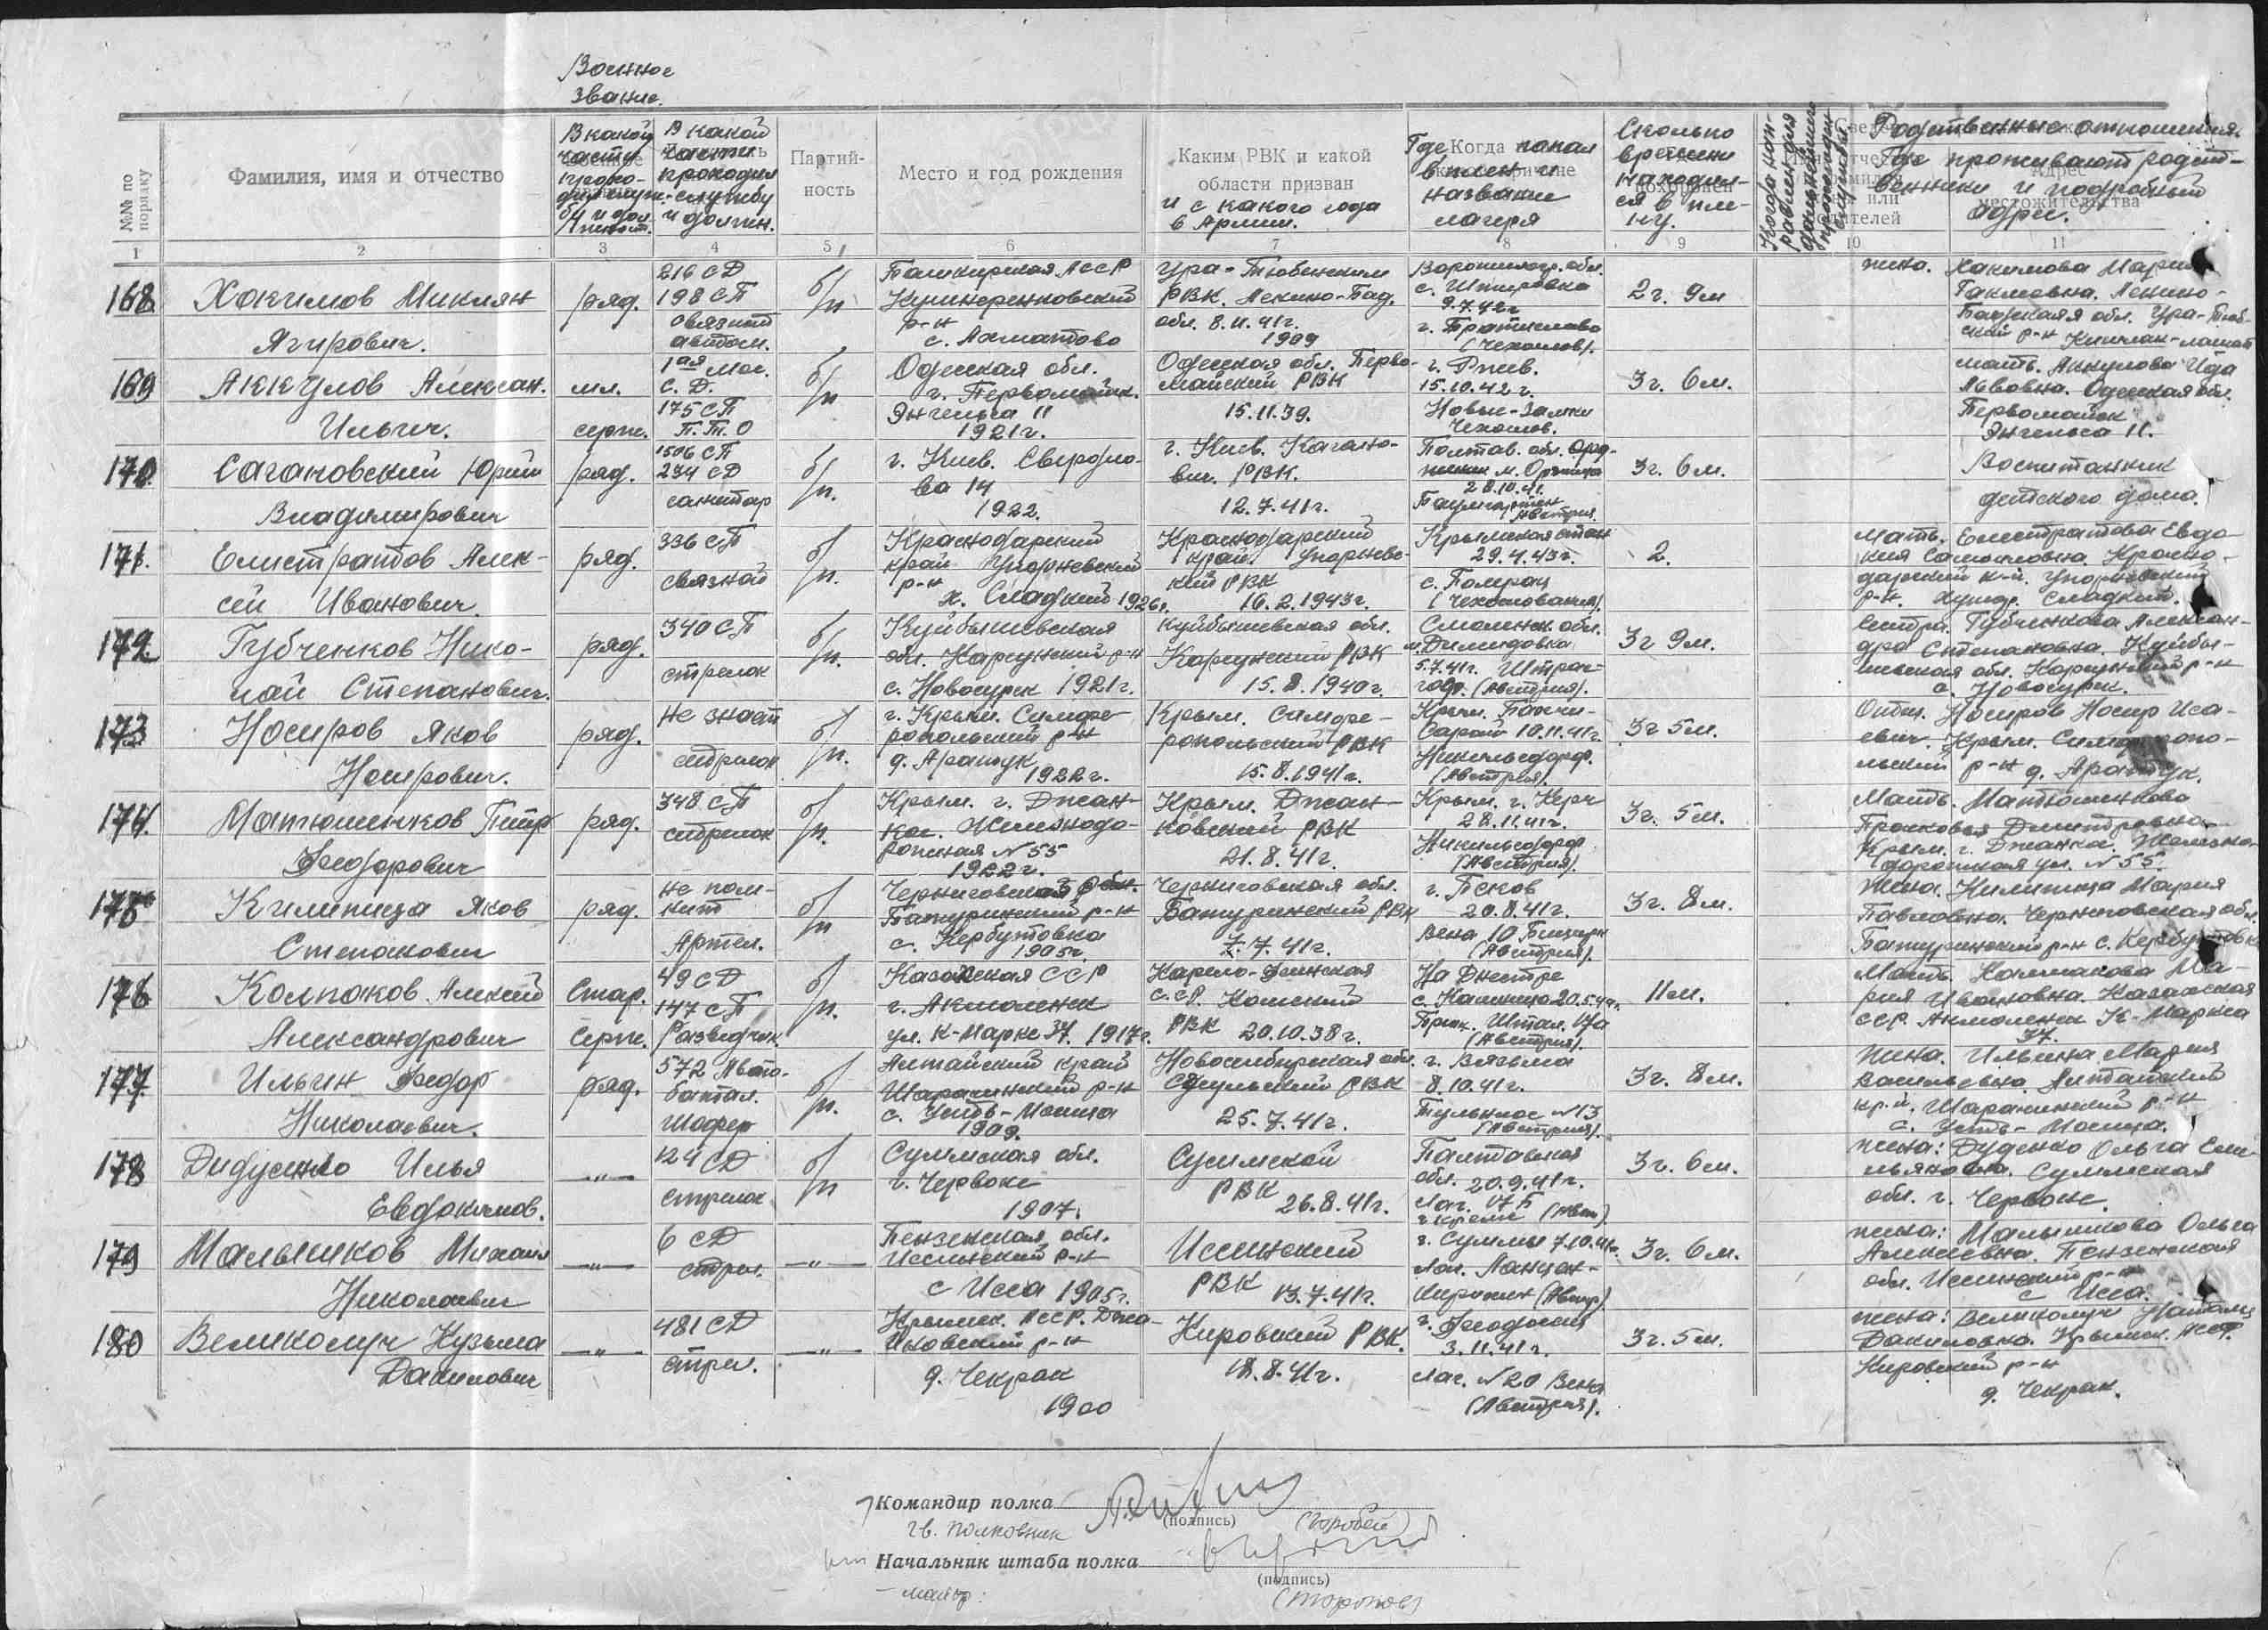 Военное
звание.
№№ по порядку
Фамилия, имя и отчество
В какой
части
служб
и должн.
В какой
части
проходил
службу
и должн.
Партий-
ность
Место и год рождения
Каким РВК и какой
области призван
и с какого года
в Армии.
Где Когда попал
в плен и
название
лагеря
Сколько
времени
находил-
ся в пле-
ну.
Родственные отношения.
Где проживают родст-
венники и подробный
адрес.
1 2 3 4 5 6 7 8 9 10 11
168
Хакимов Миклян
Ягирович.
ряд.
216 СД
198 СП
связной
автом.
б/п
Башкирская АССР
Кушнеренковский
р-н
с. Ахматово
1909
Ура-Тюбенским
РВК. Ленино-Бад.
обл. 8.11.41г.
Ворошиловг. обл.
с. Штировка
9.7.42г
г. Братислава
(Чехослов).
2г. 9м
жена. Хакимова Мария
Ленино-
Бадская обл. Ура-Тюб-
ский р-н Кишлак-
169
Аккулов Алексан.
Ильич.
мл.
серж.
1ая мос.
С. Д.
175 СП
П.Т.О
б/п
Одесская обл.
г. Первомайск.
Энгельса 11
1921г.
Одесская обл. Перво-
майский РВК
15.11.39.
г. Ржев.
15.10.42г.
Новые-Замки
Чехослов.
3г. 6м.
мать. Аккулова Ида
Львовна. Одесская обл.
Первомайск
Энгельса 11.
170.
Сагановский Юрий
Владимирович
ряд.
1506 СП
234 СД
санитар
б/п.
г. Киев. Свердло-
ва 14
1922.
г. Киев. Кагано-
вич. РВК.
12.7.41г.
Полтав. обл.
м. Оржица
28.10.41.
Баумгартен
Австрия.
3г. 6м.
Воспитанник
детского дома.
171.
Елистратов Алек-
сей Иванович.
ряд.
336 СП
связной
б/п.
Краснодарский
край Упорневский
р-н
х. Сладкий 1926г.
Краснодарский
край. Упорнев-
кий РВК
16.2.1943г.
Крымская стан
29.4.43г.
с. Голерац
(Чехословакия).
2.
Мать. Елистратова Евдо-
кия Самойловна. Красно-
дарский к-й. Упорневский
р-н. хутор. Сладкий.
172
Губченков Нико-
лай Степанович.
ряд.
340 СП
стрелок
б/п.
Куйбышевская
обл. Карсунский р-н
с. Новосурск 1921г.
Куйбышевская обл.
Карсунский РВК
15.8.1940г.
Смоленск. обл.
м. Демидовка
5.7.41г. Штрас-
гоф. (Австрия).
3г 9м.
Сестра. Губченкова Алексан-
дра Степановна. Куйбы-
шевская обл. Карсунский р-н
с. Новосурск.
173
Носиров Яков
Носирович.
ряд.
не знает
стрелок
б/п.
г. Крым. Симфе-
ропольский р-н
д. Аратук
1922г.
Крым. Симфе-
ропольский РВК
15.8.1941г.
Крым. Бахчи-
Сарай 10.11.41г.
Никильсдорф.
(Австрия).
3г 5м.
Отец. Носиров Носир Иса-
евич. Крым. Симферопо-
льский р-н д. Аратук.
174.
Матюшенков Петр
Федорович
ряд.
348 СП
стрелок
б/п.
Крым. г. Джан-
кой. Железнодо-
рожная №55
1922г.
Крым. Джан-
ковский РВК
21.8.41г.
Крым. г. Керч
28.11.41г.
Никильсдорф
(Австрия).
3г. 5м.
Мать. Матюшенкова
Прасковья Дмитровна
Крым. г. Джанкой. Железно-
дорожная ул. №55.
175
Килипица Яков
Степанович
ряд.
не пом-
нит
Артил.
б/п
Черниговская обл.
Батуринский р-н
с. Кербутовка
1905г.
Черниговская обл.
Батуринский РВК
7.7.41г.
г. Псков
20.8.41г.
Вена 10
(Австрия).
3г. 8м.
Жена. Килипица Мария
Павловна. Черниговская обл.
Батуринский р-н с. Кербутовка
176
Колпаков Алексей
Александрович
Стар.
Серж.
49 СД
147 СП
Разведчик
б/п.
Казахская ССР
г. Акмоленск
ул. К-Маркс 37. 1917г.
Карело-Финская
С.СР.
РВК 20.10.38г.
На Днестре
с. 20.5.44г.
Штал. 17а
(Австрия).
11м.
Мать. Колпакова Ма-
рия Ивановна. Казахская
ССР Акмоленск К-Маркса
37.
177.
Ильин Федор
Николаевич.
ряд.
572 Авто-
батал.
Шофер
б/п.
Алтайский край
р-н
с. Усть-Мосиха
1909.
Новосибирская обл.
РВК
25.7.41г.
г. Вязьма
8.10.41г.
№13
(Австрия).
3г. 8м.
Жена. Ильина Мария
Васильевна. Алтайский
кр-й. р-н
с. Усть-Мосиха.
178
Дидусенко Илья
Евдокимов.
—„—
124 СД
стрелок
б/п
Сумская обл.
г. Червоне
1907.
Сумской
РВК 26.8.41г.
Палтавская
обл. 20.9.41г.
Лаг. 17Б
г. Кремс (Авст).
3г. 6м.
жена: Дуденко Ольга Еме-
льяновна. Сумская
обл. г. Червоне.
179
Малышков Михаил
Николаевич
—„—
6 СД
стрел.
—„—
Пензенская обл.
Иссинский р-н
с Исса 1905г.
Иссинский
РВК 13.7.41г.
г. Суммы 7.10.41г.
Лаг. Ланцен-
кирхен (Австр).
3г. 6м.
жена: Малышкова Ольга
Алексеевна. Пензенская
обл. Иссинский р-н
с Исса.
180
Великолуч Кузьма
Данилович
—„—
481 СД
стрел.
—„—
Крымск. АССР. Джа-
нковский р-н
д. Чекрак
1900
Кировский РВК.
18.8.41г.
г. Феодосия
3.11.41г.
Лаг. №20 Вена
(Австрия).
3г. 5м.
жена: Великолуч Наталья
Даниловна. Крымск. АССР.
Кировский р-н
д. Чекрак.
Командир полка
гв. полковник
(подпись)
Начальник штаба полка
майор:
(подпись)